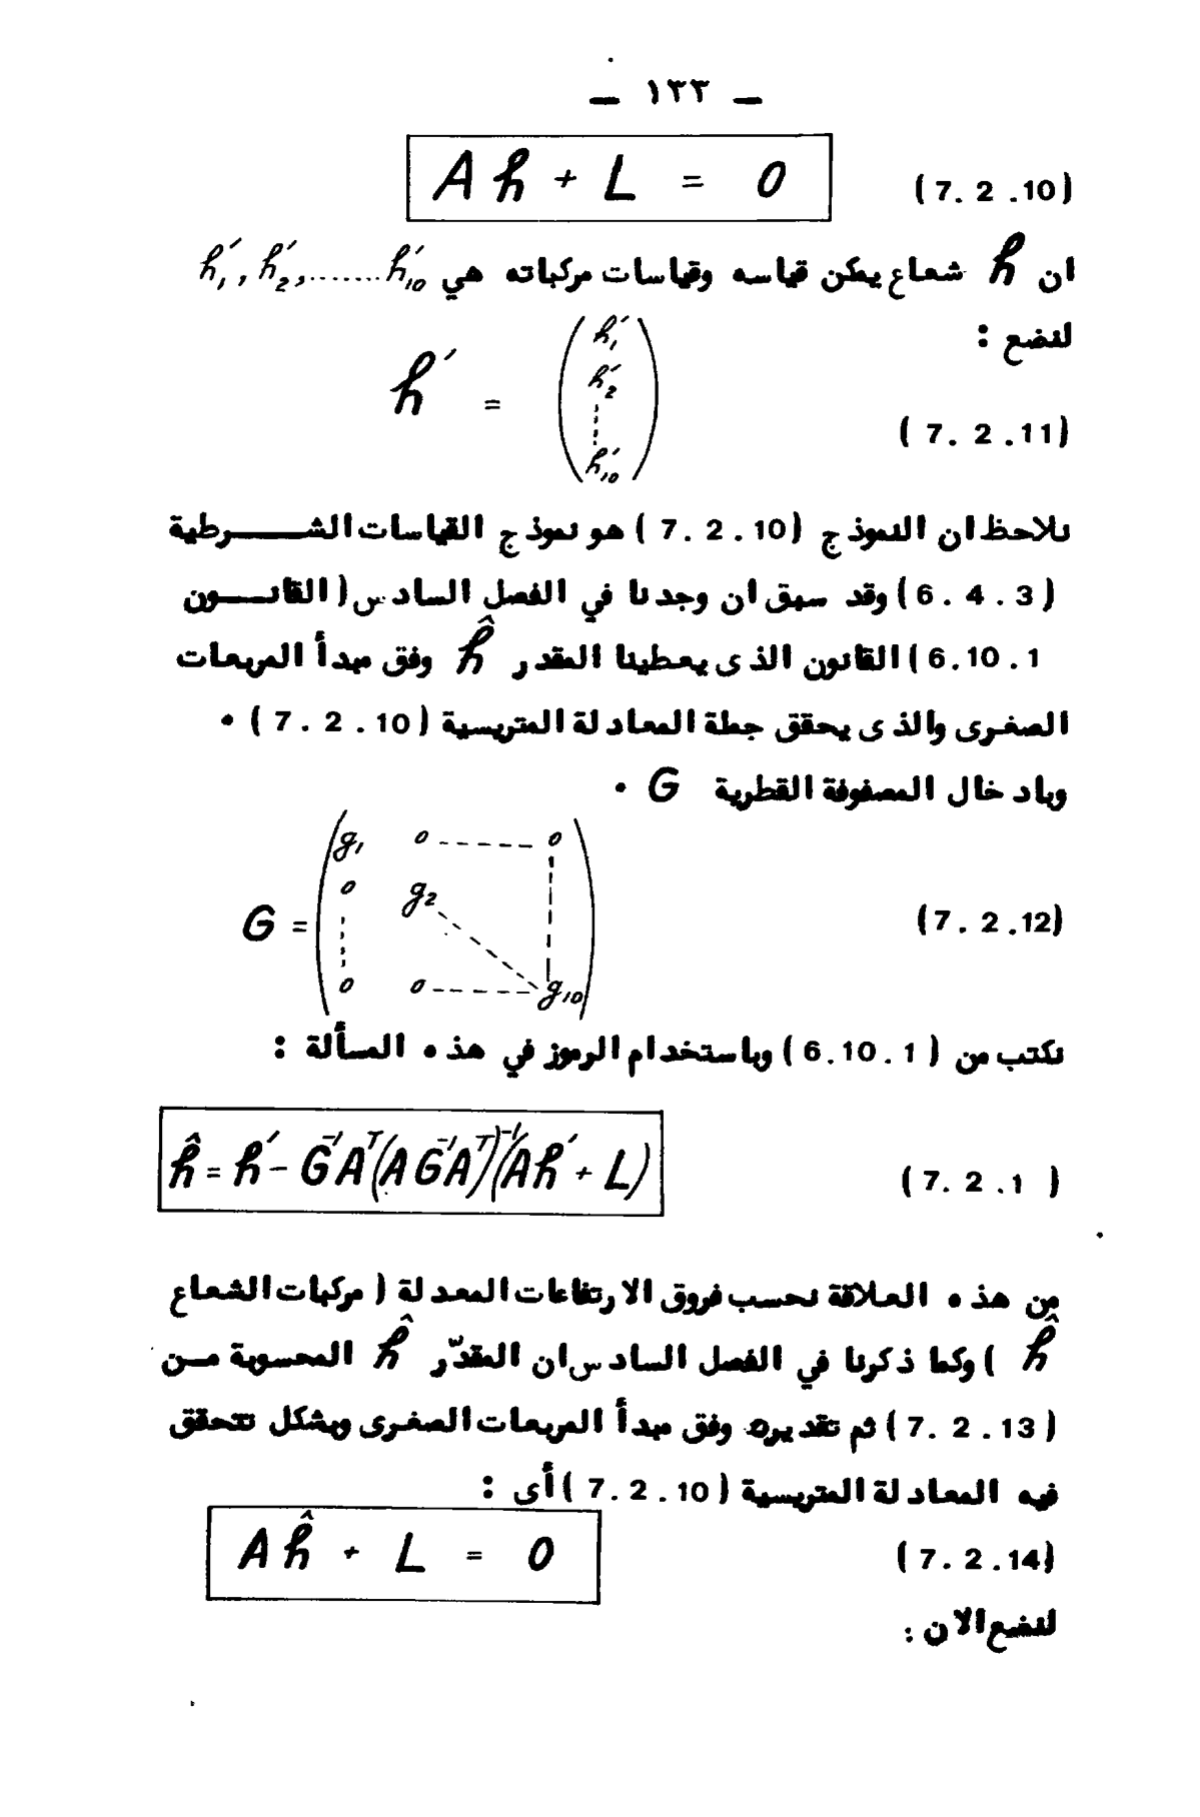 — ١٣٣ —
A h + L = 0 (7.2.10)
ان h شعاع يمكن قياسه وقياسات مركباته هي h′₁ , h′₂ ,....... h′₁₀
لنضع :
h′ = ( h′₁ h′₂ ⋮ h′₁₀ ) (7.2.11)
نلاحظ ان النموذج (7.2.10) هو نموذج القياسات الشـــرطية
(6.4.3) وقد سبق ان وجدنا في الفصل السادس (القانـــون
6.10.1) القانون الذى يعطينا المقدر ĥ وفق مبدأ المربعات
الصغرى والذى يحقق جملة المعادلة المتريسية (7.2.10) •
وبادخال المصفوفة القطرية G •
g₁ 0 ------ 0
0 g₂
G = (7.2.12)
0 0 ------ g₁₀
نكتب من (6.10.1) وباستخدام الرموز في هذه المسألة :
ĥ = h′ − G⁻¹Aᵀ(A G⁻¹Aᵀ)⁻¹(A h′ + L) (7.2.1 )
من هذه العلاقة نحسب فروق الارتفاعات المعدلة (مركبات الشعاع
ĥ ) وكما ذكرنا في الفصل السادس ان المقدّر ĥ المحسوبة مــن
(7.2.13) تم تقديره وفق مبدأ المربعات الصغرى وبشكل تتحقق
فيه المعادلة المتريسية (7.2.10) أى :
A ĥ + L = 0 (7.2.14)
لنضع الان :